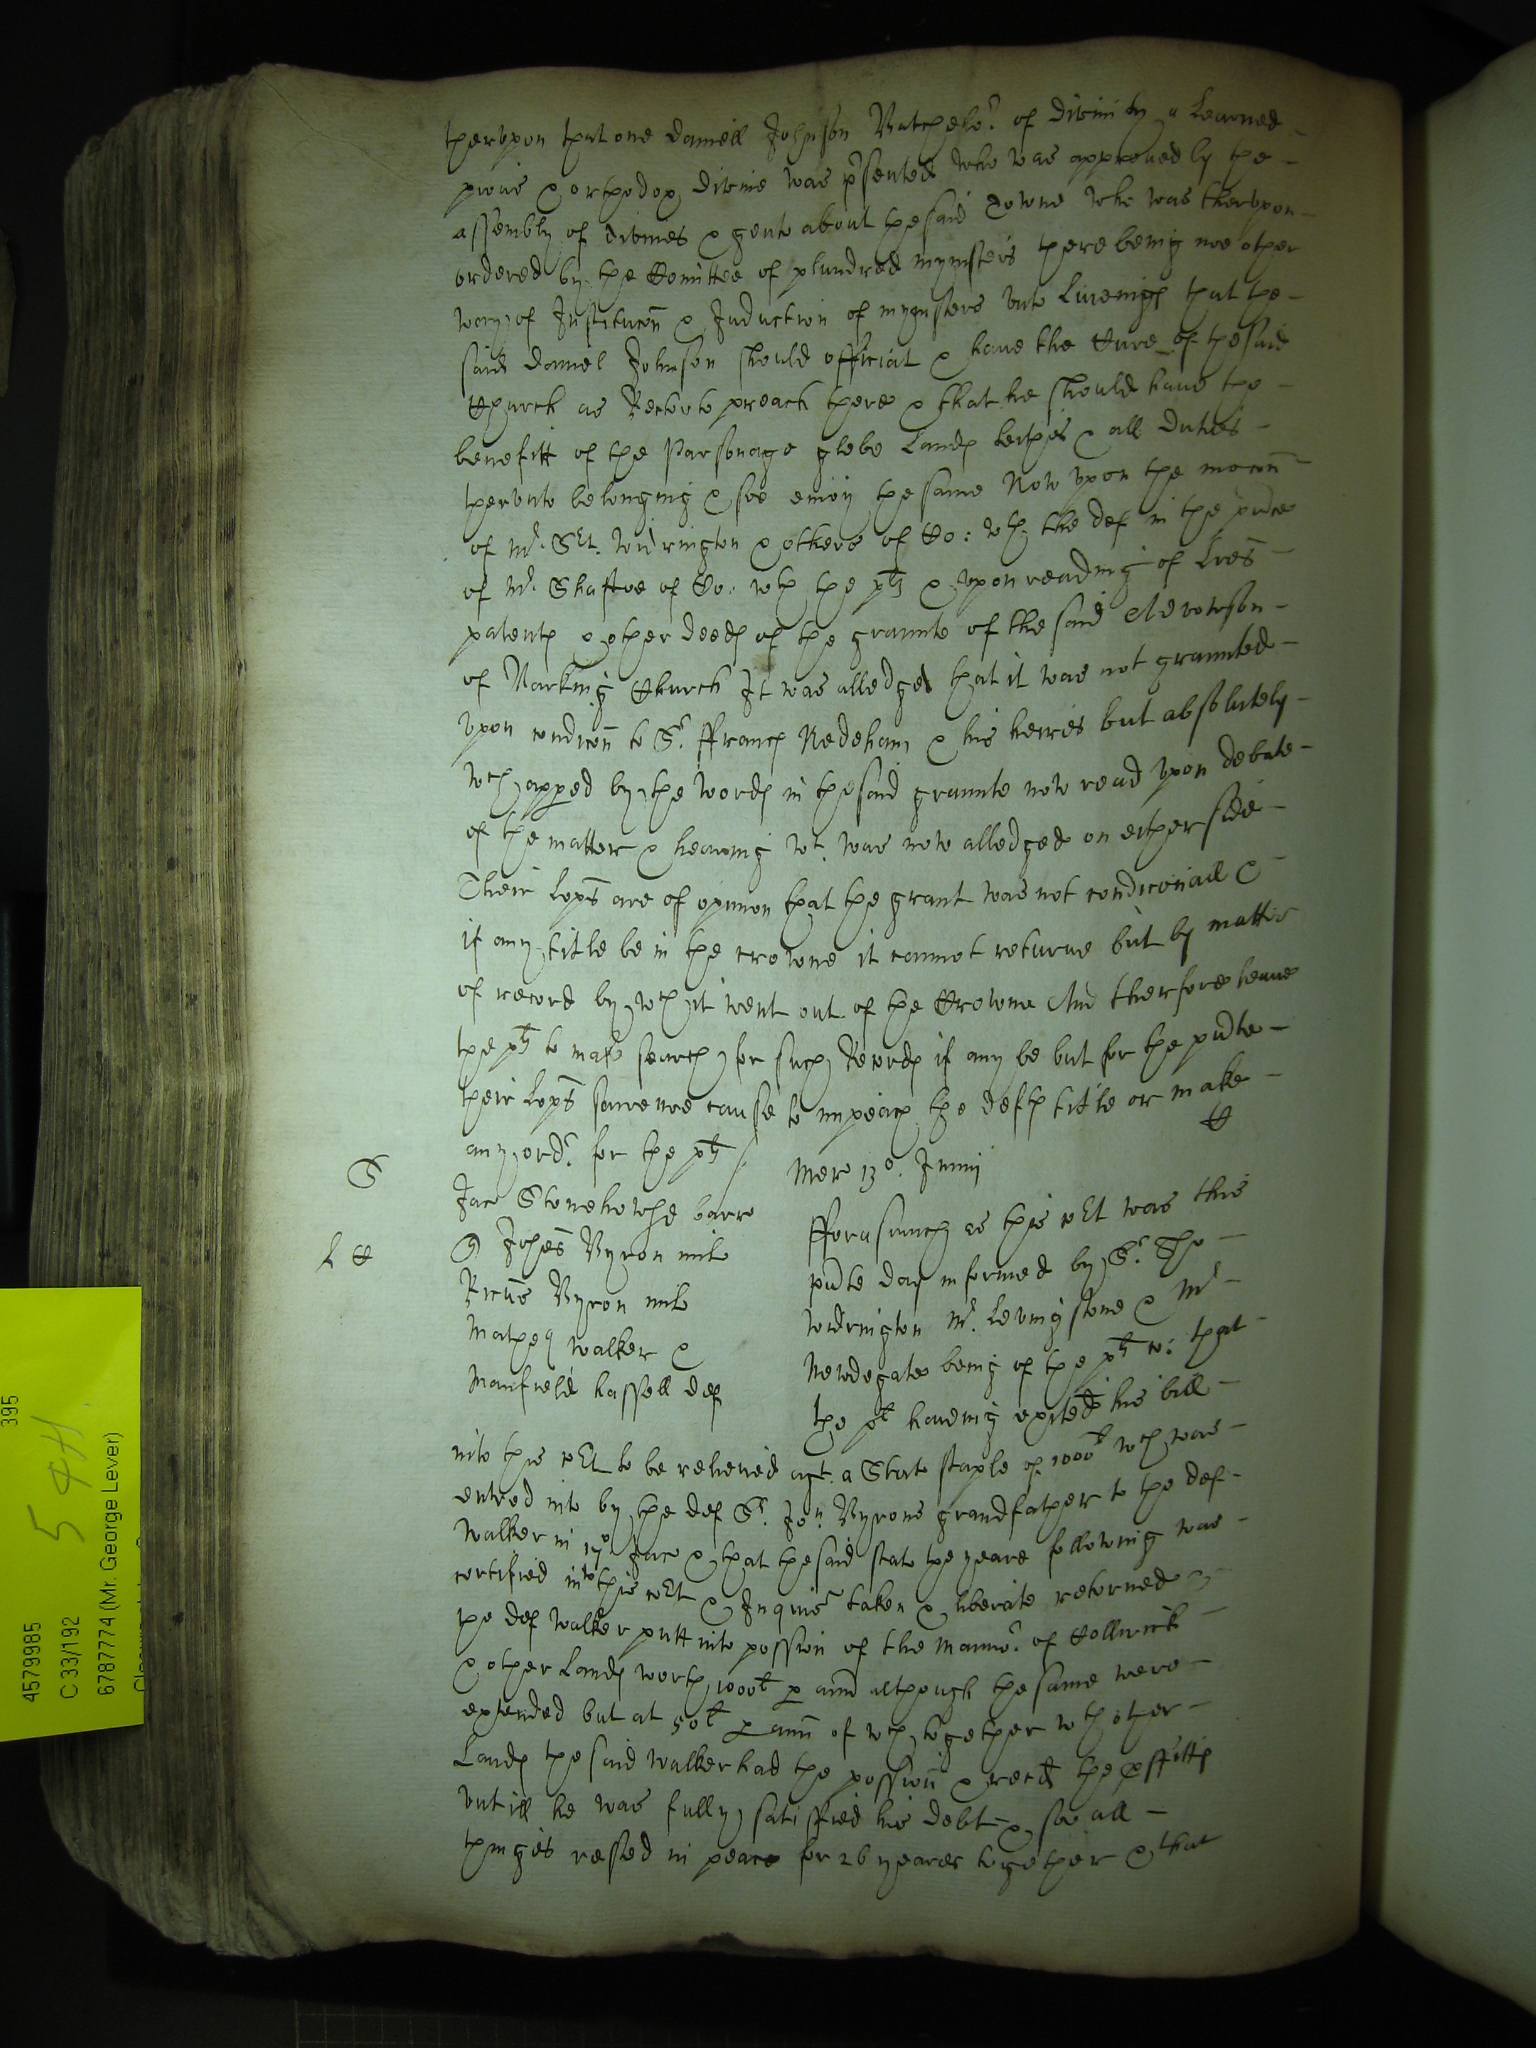 therupon that one Daniell Johnson Batchelor of Divinity a Learned
pious & orthodox Divine was presented who was approued by the
assembly of divines & gents about the said Towne who was therupon
ordered by the Comittee of plundred mynisters there being noe other
way of Institucon & Induction of mynisters vnto Liueings that the
said Daniel Johnson should officiat & haue the Cure of the said
Church as Rector to preach there & that he should haue the
benefitt of the Parsonage glebe Lands teithes & all duties
thervnto belonging & soe enioy the same Now vpon the mocon
of Mr. Srt. Widrington & others of Co: wth the def in the pnce
of Mr. Shaftoe of Co: wth the plt & vpon reading of Lres
patents & other deeds of the graunte of the said Advowson
of Barking Church It was alledged that it was not graunted
vpon condicon to Sr. ffrancs Nedeham & his heires but absolutely
wch appered by the words in the said graunte now read vpon debate
of the matter & hearing wt. was now alledged on either side
Their Lopps are of opinion that the grant was not condiconall &
if any title be in the crowne it cannot returne but by matter
of record by wch it went out of the Crowne And therfore leaue
the plt to make search for such Records if any be but for the pnte
their Lopps sawe noe cause to impeach the defts title or make
any ordr. for the plt /
C
Mer 13o. Junij
S
Jac Stonehowse barro
L C
Johes Byron mil
Ricus Byron mil
Matheu Walker &
Manfield Cassell def
fforasmuch as this Crt was this
pnte day informed by Sr. Tho
Widrington Mr. Levingstone & Mr
Newdegate being of the plt co: that
the plt haueing exited his bill
into this Crt to be relieued agt. a Statt staple of 1000l wch was
entred into by the def Sr. Jon. Byrons grandfather to the def
Walker in 17o Jace & that the said stat the yeare following was
certified into this Crt & Inquis taken & liberate retorned &
the def Walker putt into possion of the Mannor of Collwick
& other Lands worth 1000l p ann although the same were
extended but at 50l p ann of wch together wth other
Lands the said Walker had the possion & recd the proffitts
vntill he was fully satisfied his debt & soe all
things rested in peace for 26 yeares together & that
395
5 4H.
4579985
C 33/192
6787774 (Mr. George Lever)